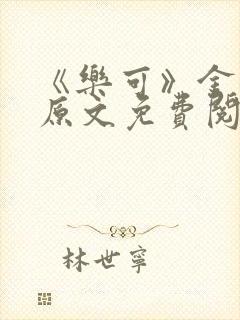 《樂可》全
原文免費閱
林世寧